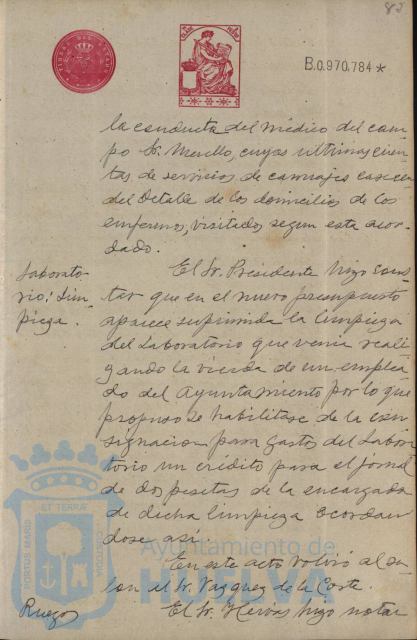 82
B.0,970,784*
la conducta del médico del cam-
po Sr. Merello, cuyas ultimas cuen-
tas de servicios de carruajes carecen
del Detalle de los domicilios de los
enfermos, visitados, segun esta acor-
dado.
Laborato-
rio: Lim-
pieza.
El Sr. Presidente hizo cons-
tar que en el nuevo presupuesto
aparece suprimida la limpieza
del Laboratorio que venia reali-
zando la viuda de un emplea-
do del Ayuntamiento por lo que
propuso se habilitase de la con-
signacion para gastos del Labora-
torio un crédito para el jornal
de dos pesetas de la encargada
de dicha limpieza acordan-
dose así.
En este acto volvió al sa-
lon el Sr. Vazquez de la Corte.
Ruegos
El Sr. Hervas hizo notar
PORTUS MARIS
ET TERRAE
CUSTODIA
Ayuntamiento de
HUELVA